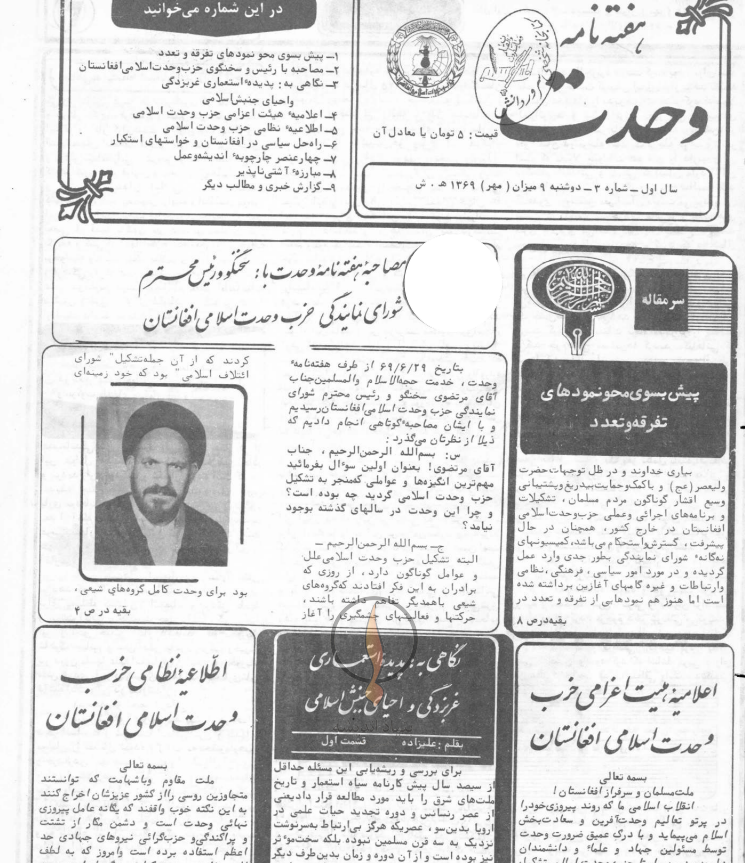 هفته‌نامه
وحدت
قیمت: ۵ تومان یا معادل آن
سال اول ــ شماره ۳ ــ دوشنبه ۹ میزان ( مهر ) ۱۳۶۹ هـ . ش
در این شماره می‌خوانید
۱ــ پیش بسوی محو نمودهای تفرقه و تعدد
۲ــ مصاحبه با رئیس و سخنگوی حزب‌وحدت‌اسلامی‌افغانستان
۳ــ نگاهی به: پدیدهٔ استعماری غربزدگی
واحیای جنبش‌اسلامی
۴ــ اعلامیهٔ هیئت اعزامی حزب وحدت اسلامی
۵ــ اطلاعیهٔ نظامی حزب وحدت اسلامی
۶ــ راه‌حل سیاسی در افغانستان و خواستهای استکبار
۷ــ چهارعنصر چارچوبهٔ اندیشه‌وعمل
۸ــ مبارزهٔ آشتی‌ناپذیر
۹ــ گزارش خبری و مطالب دیگر
سرمقاله
پیش‌بسوی‌محو‌نمودهای
تفرقه‌و‌تعدد
بیاری خداوند و در ظل توجهات‌حضرت
ولیعصر(عج) و باکمک‌وحمایت‌بیدریغ‌وپشتیبانی
وسیع اقشار گوناگون مردم مسلمان، تشکیلات
و برنامه‌های اجرائی وعملی حزب‌وحدت‌اسلامی
افغانستان در خارج کشور، همچنان در حال
پیشرفت، گسترش‌واستحکام می‌باشد،کمیسیونهای
نه‌گانهٔ شورای نمایندگی بطور جدی وارد عمل
گردیده و در مورد امور سیاسی، فرهنگی، نظامی
وارتباطات و غیره گامهای آغازین برداشته شده
است اما هنوز هم نمودهایی از تفرقه و تعدد در
بقیه‌درص ۸
مصاحبهٔ هفته‌نامه وحدت با: سخنگو ورئیس محترم
شورای نمایندگی حزب وحدت اسلامی افغانستان
بتاریخ ۶۹/۶/۲۹ از طرف هفته‌نامهٔ
وحدت، خدمت حجه‌الاسلام والمسلمین‌جناب
آقای مرتضوی سخنگو و رئیس محترم شورای
نمایندگی حزب وحدت اسلامی‌افغانستان‌رسیدیم
و با ایشان مصاحبهٔ کوتاهی انجام دادیم که
ذیلا از نظرتان می‌گذرد:
س: بسم‌الله الرحمن‌الرحیم، جناب
آقای مرتضوی! بعنوان اولین سوٴال بفرمائید
مهم‌ترین انگیزه‌ها و عواملی که‌منجر به تشکیل
حزب وحدت اسلامی گردید چه بوده است؟
و چرا این وحدت در سالهای گذشته بوجود
نیامد؟
ج‌ــ بسم‌الله الرحمن‌الرحیم ــ
البته تشکیل حزب وحدت اسلامی‌علل
و عوامل گوناگون دارد، از روزی که
برادران به این فکر افتادند که‌گروه‌های
شیعی باهمدیگر تفاهم داشته باشند،
حرکتها و فعالیتهای چشمگیری را آغاز
کردند که از آن جمله‌تشکیل" شورای
ائتلاف اسلامی" بود که خود زمینه‌ای
بود برای وحدت کامل گروه‌های شیعی،
بقیه در ص ۴
اعلامیه هیئت اعزامی حزب
وحدت اسلامی افغانستان
بسمه تعالی
ملت‌مسلمان و سرفراز افغانستان!
انقلاب اسلامی ما که روند پیروزی‌خودرا
در پرتو تعالیم وحدت‌آفرین و سعادت‌بخش
اسلام می‌پیماید و با درک عمیق ضرورت وحدت
توسط مسئولین جهاد و علماء و دانشمندان
نگاهی به: پدیدهٔ استعماری
غربزدگی و احیای جنبش اسلامی
بقلم: علیزاده قسمت اول
برای بررسی و ریشه‌یابی این مسئله حداقل
از سیصد سال پیش کارنامه سیاه استعمار و تاریخ
ملت‌های شرق را باید مورد مطالعه قرار دادیعنی
از عصر رنسانس و دوره تجدید حیات علمی در
اروپا بدین‌سو، عصریکه هرگز بی‌ارتباط به‌سرنوشت
نزدیک به سه قرن مسلمین نبوده بلکه سخت‌موٴثر
نیز بوده است و از آن دوره و زمان بدین‌طرف دیگر
اطلاعیهٔ نظامی حزب
وحدت اسلامی افغانستان
بسمه تعالی
ملت مقاوم وباشهامت که توانستند
متجاوزین روسی رااز کشور عزیزشان اخراج کنند
به این نکته خوب واقفند که یگانه عامل پیروزی
نهائی وحدت است و دشمن مکار از تشتت
و پراکندگی‌و حزب‌گرائی نیروهای جهادی حد
اعظم استفاده برده است وامروز که به لطف